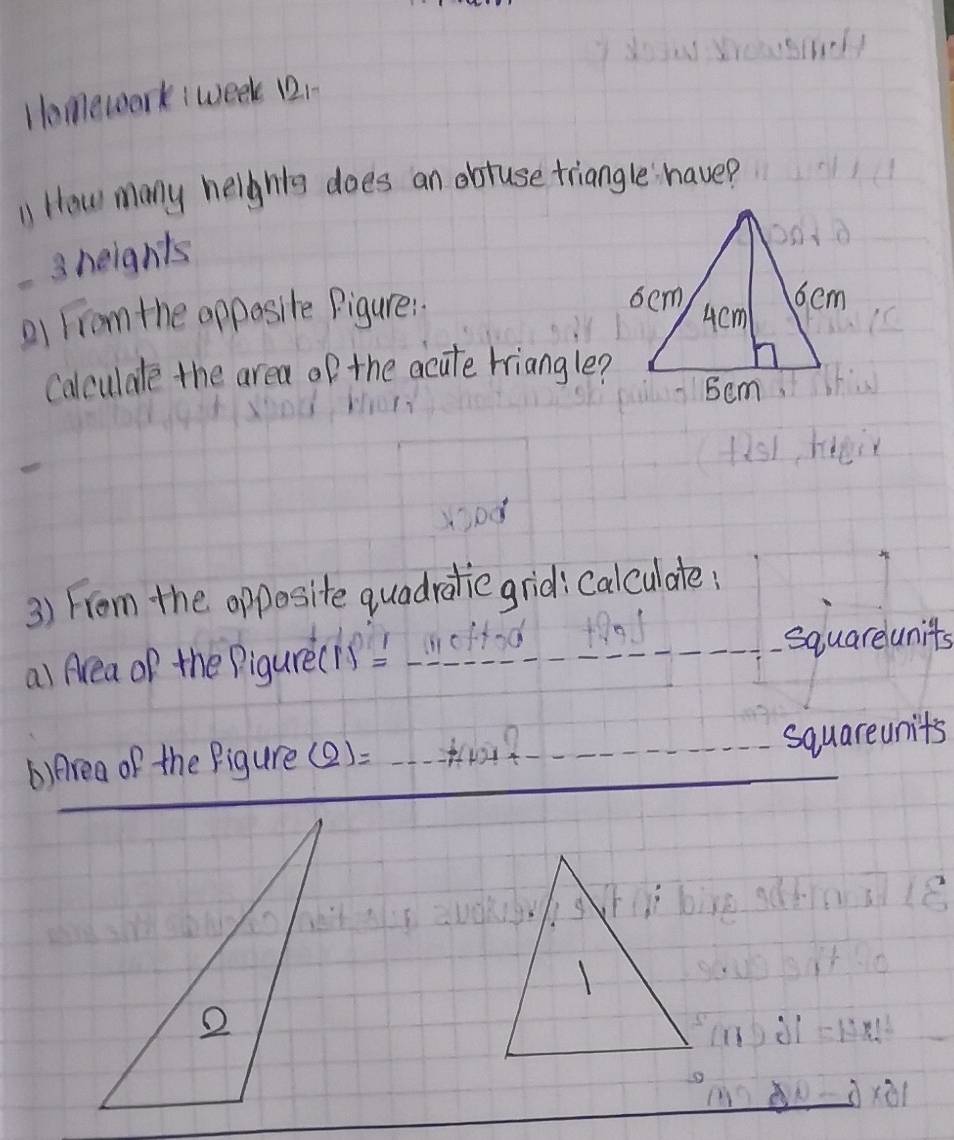 Homework: week 12:-
1) How many heights does an obtuse triangle have?
- 3 heights
2) From the opposite figure:-
6cm
4cm
6cm
calculate the area of the acute triangle?
5cm
-
3) From the opposite quadratic grid: calculate:
a) Area of the figure(1) = ---------------- square units
b) Area of the figure (2) = ---------------- square units
2
1